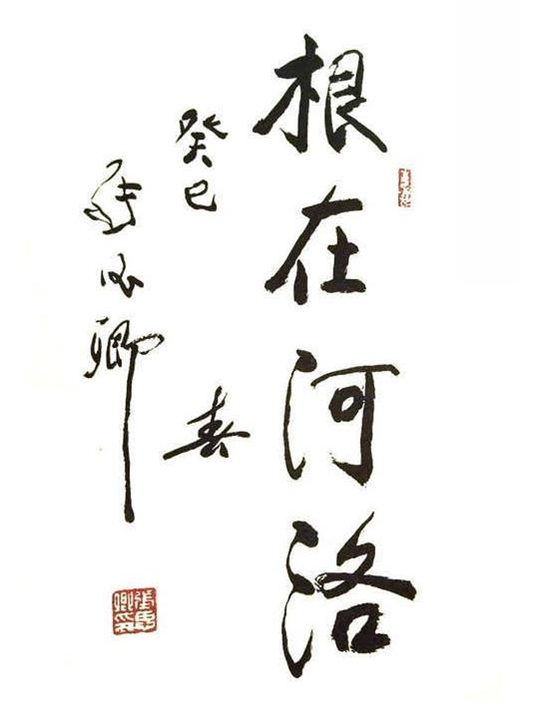 根在河洛
癸巳春
卿